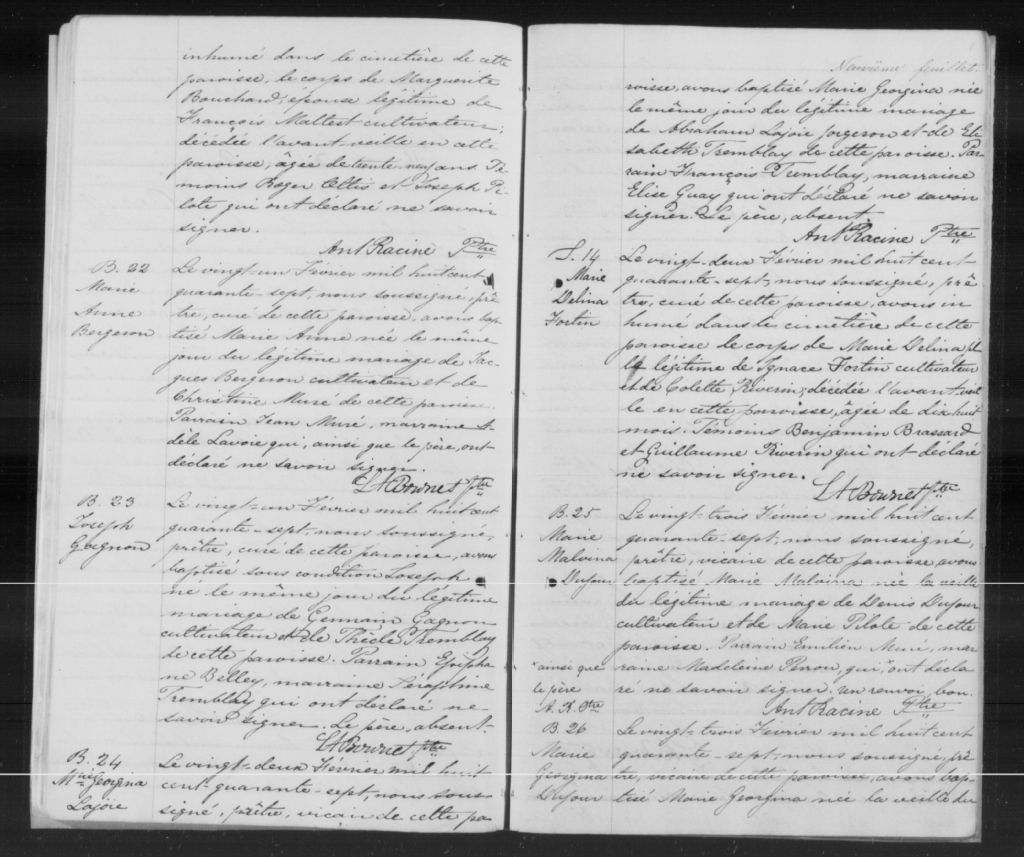 inhumé dans le cimetière de cette
paroisse, le corps de Marguerite
Bouchard, épouse légitime de
François Maltest cultivateur;
décédée l'avant-veille en cette
paroisse, âgée de trente neuf ans Té-
moins Roger et Joseph Pi-
lote qui ont déclaré ne savoir
signer.
Ant Racine Ptre
B. 22
Marie
Anne
Bergeron
Le vingt-un Février mil huit cent
quarante-sept, nous soussigné, prê-
tre, curé de cette paroisse, avons bap-
tisé Marie Anne née le même
jour du légitime mariage de Jac-
ques Bergeron cultivateur et de
Christine Muré de cette paroisse.
Parrain Jean Muré, marraine A-
dele Lavoie qui, ainsi que le père, ont
déclaré ne savoir signer.
Bournet Ptre
B. 23
Joseph
Gagnon
Le vingt-un Février mil huit cent
quarante-sept, nous soussigné,
prêtre, curé de cette paroisse, avons
baptisé sous condition Joseph
né le même jour du légitime
mariage de Germain Gagnon
cultivateur et de Thècle Tremblay
de cette paroisse. Parrain Epipha-
ne Belley, marraine Séraphine
Tremblay qui ont déclaré ne
savoir signer. Le père, absent.
Bournet Ptre
B. 24
Georgina
Lajoie
Le vingt-deux Février mil huit
cent quarante-sept, nous sous-
signé, prêtre, vicaire de cette pa
Neuvième feuillet.
roisse, avons baptisé Marie Georgina née
le même jour du légitime mariage
de Abraham Lajoie forgeron et de Eli
sabeth Tremblay de cette paroisse. Par-
rain François Tremblay, marraine
Elise Guay qui ont déclaré ne savoir
signer. Le père, absent.
Ant Racine Ptre
S. 14
Marie
Delina
Fortin
Le vingt-deux Février mil huit cent
quarante-sept, nous soussigné, prê-
tre, curé de cette paroisse, avons in
humé dans le cimetière de cette
paroisse le corps de Marie Delina, fil
le légitime de Ignace Fortin cultivateur
et de Colette Riverin, décédée l'avant-veil
le en cette paroisse, âgée de dix huit
mois. Témoins Benjamin Brassard
et Guillaume Riverin qui ont déclaré
ne savoir signer.
Bournet Ptre
B. 25
Marie
Malvina
Dufour
Le vingt-trois Février mil huit cent
quarante-sept, nous soussigné,
prêtre, vicaire de cette paroisse, avons
baptisé Marie Malvina née la veille
du légitime mariage de Denis Dufour
cultivateur et de Marie Pilote de cette
paroisse. Parrain Emilien Muré, mar-
raine Madeleine Perron, qui * ont décla-
ré ne savoir signer. Un renvoi, bon.
* ainsi que
le père
A. R. Ptre
Ant Racine Ptre
B. 26
Marie
Georgina
Dufour
Le vingt-trois Février mil huit cent
quarante-sept, nous soussigné, prê
tre, vicaire de cette paroisse, avons bap-
tisé Marie Georgina née la veille du